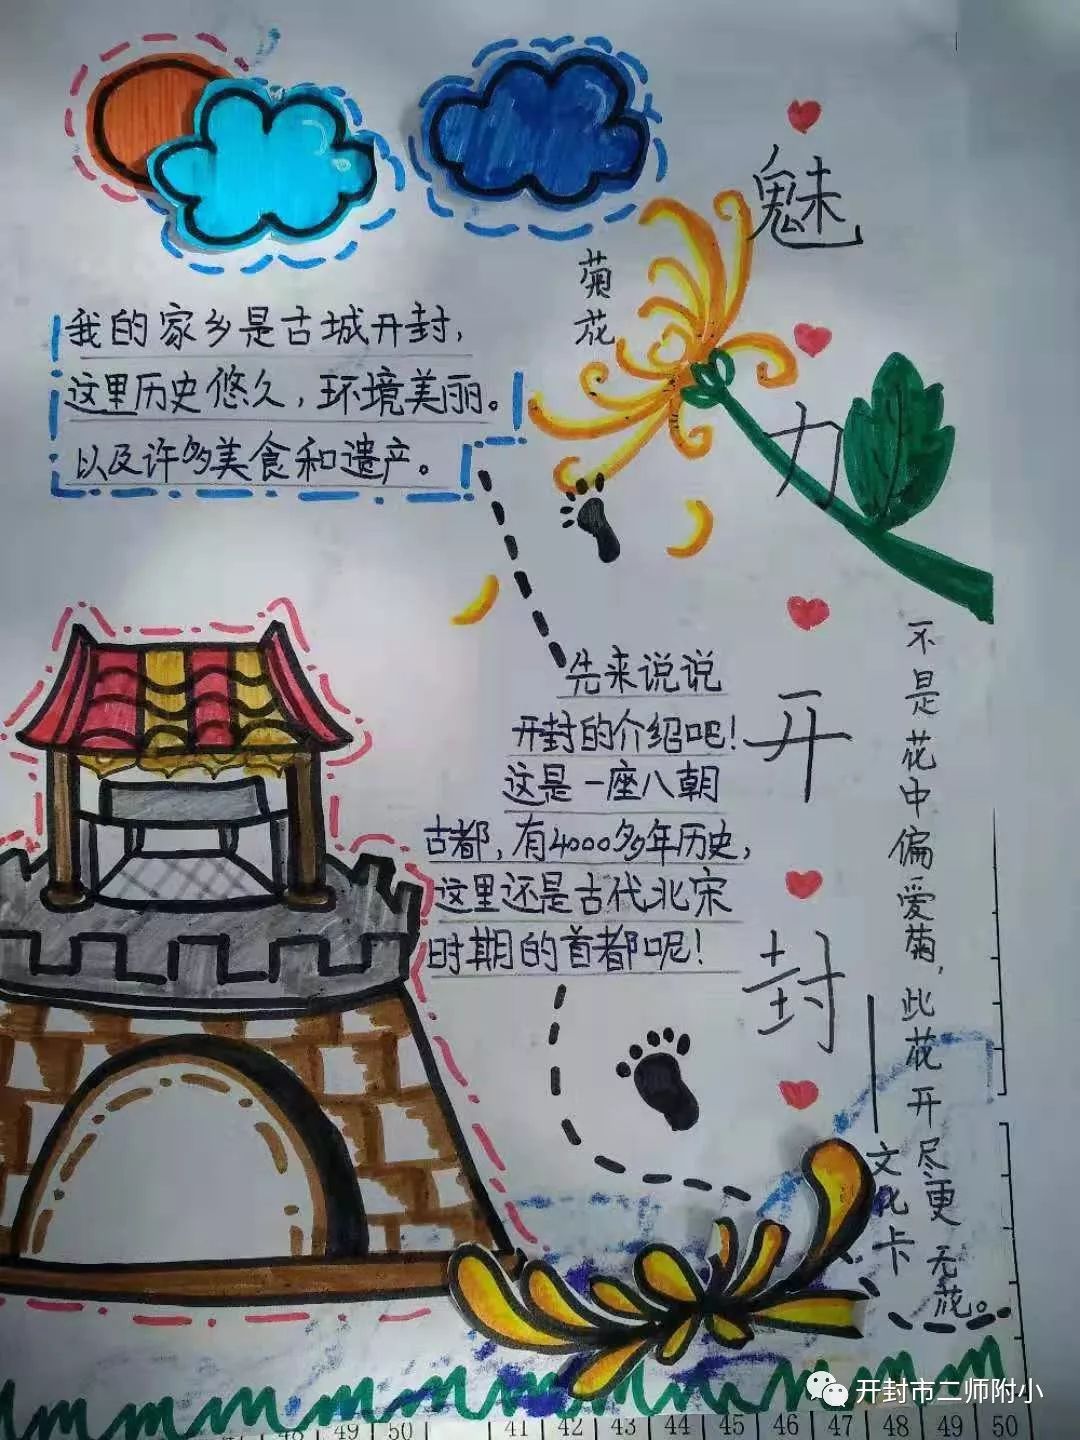 魅力开封
——文化卡
菊花
我的家乡是古城开封，
这里历史悠久，环境美丽。
以及许多美食和遗产。
先来说说
开封的介绍吧！
这是一座八朝
古都，有4000多年历史，
这里还是古代北宋
时期的首都呢！
不是花中偏爱菊，此花开尽更无花。
开封市二师附小
48 49 50 41 42 43 44 45 46 47 48 49 50